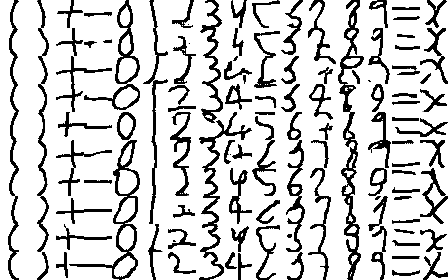 ( ) + - 0 1 2 3 4 5 3 7 8 9 = x
( ) + - 0 1 2 3 4 5 3 7 8 9 = x
( ) + - 0 1 2 3 4 5 3 7 8 9 = x
( ) + - 0 1 2 3 4 5 3 7 8 9 = x
( ) + - 0 1 2 3 4 5 6 7 8 9 = x
( ) + - 0 1 2 3 4 5 3 7 8 9 = x
( ) + - 0 1 2 3 4 5 6 7 8 9 = x
( ) + - 0 1 2 3 4 5 3 7 8 9 = x
( ) + - 0 1 2 3 4 5 3 7 8 9 = x
( ) + - 0 1 2 3 4 5 6 7 8 9 = x